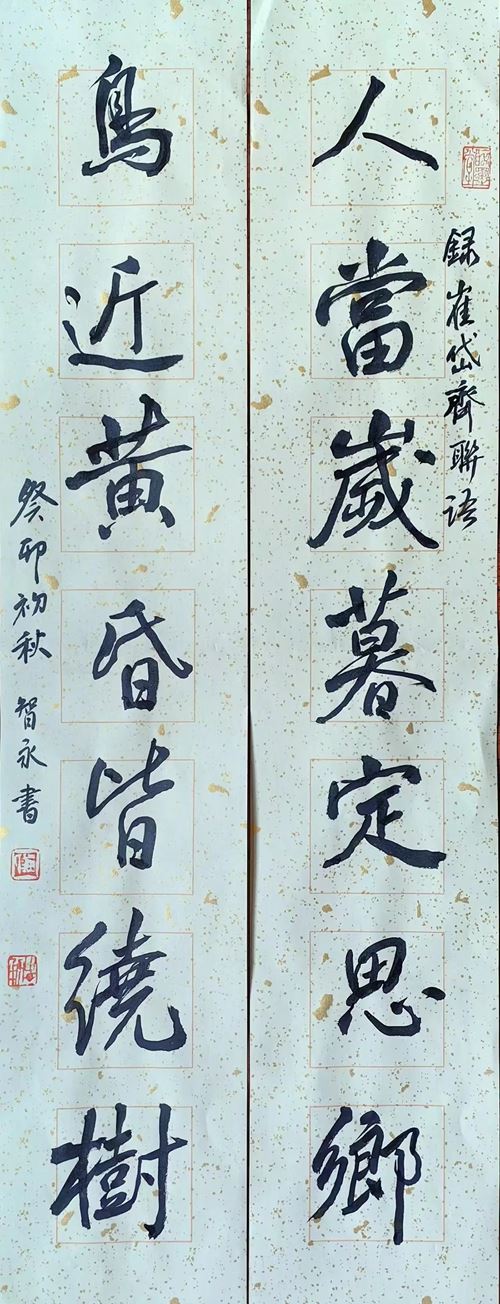 録崔岱齊聯語
人當歲暮定思鄉
鳥近黄昏皆繞樹
癸卯初秋 智永書